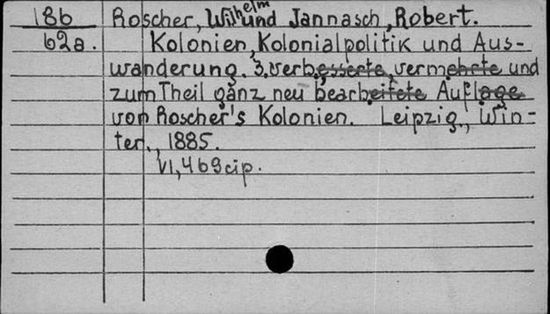 186 Roscher, Wilhelm und Jannasch, Robert.
62a. Kolonien, Kolonialpolitik und Aus-
wanderung. 3. verbesserte, vermehrte und
zum Theil gänz neu bearbeitete Auflage
von Roscher's Kolonien. Leipzig, Win-
ter., 1885.
VI, 469